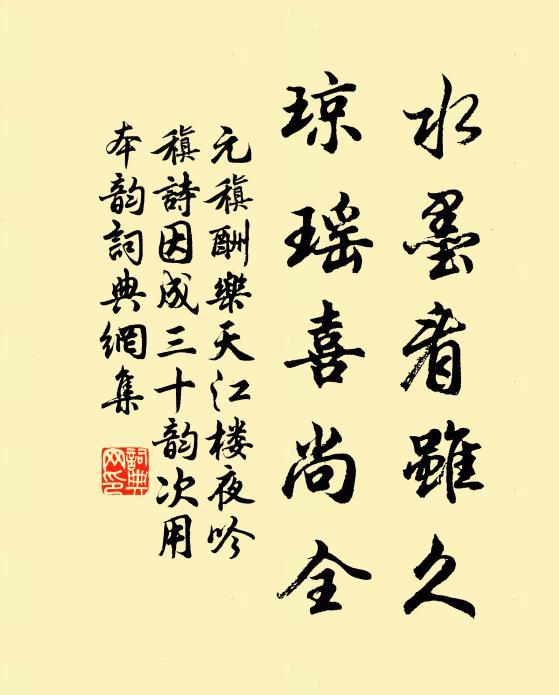 水墨看雖久
琼瑶喜尚全
元稹酬樂天江楼夜吟
稹詩因成三十韵次用
本韵詞典網集
詞典
网印